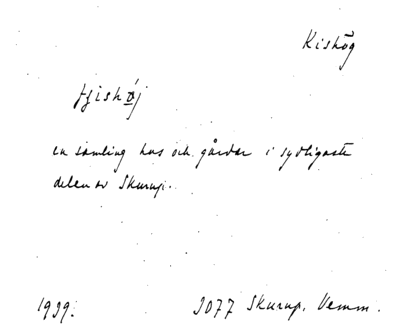 Kishög
tjishǿj
en samling hus och gårdar i sydligaste
delen av Skurup.
1939. 3077 Skurup, Vemm.